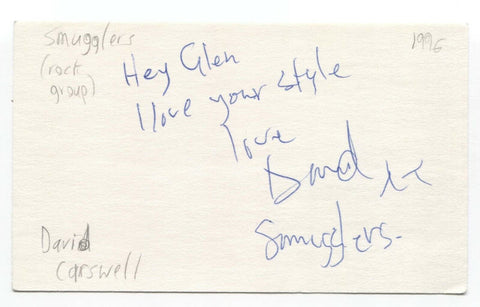 Smugglers
(rock
group)
1996
Hey Glen
I love your style
love
David xx
Smugglers.
David
Carswell